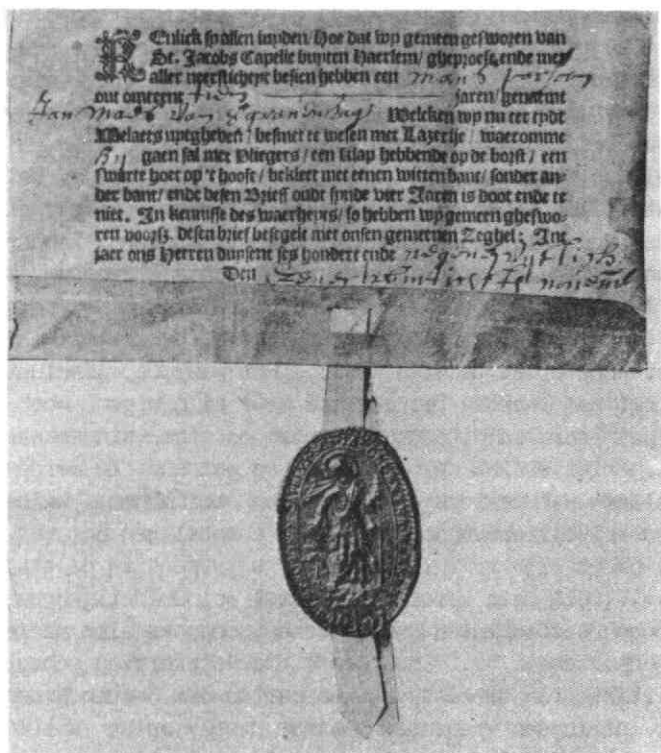 KEnlick sy allen luyden/ Hoe dat wy gemeen gesworen van
St. Jacobs Capelle buyten Haerlem/ gheproeft ende met
aller neersticheyt besien hebben een mans persoon
out omtrent tien jaren/ genaemt
Jan van Welcken wy nu ter tydt
Melaets uytgheven/ besmet te wesen met Lazerije/ waeromme
hy gaen sal met Vliegers/ een klap hebbende op de borst/ een
swarte hoet op 't hooft/ bekleet met eenen witten bant/ sonder an-
der bant/ ende desen Brieff oudt synde vier Jaren is doot ende te
niet. In kennisse des waerheyts/ so hebben wy gemeen gheswo-
ren voorsz. desen brief besegelt met onsen gemeenen Zeghel; Int
jaer ons Herren duysent ses hondert ende
Den